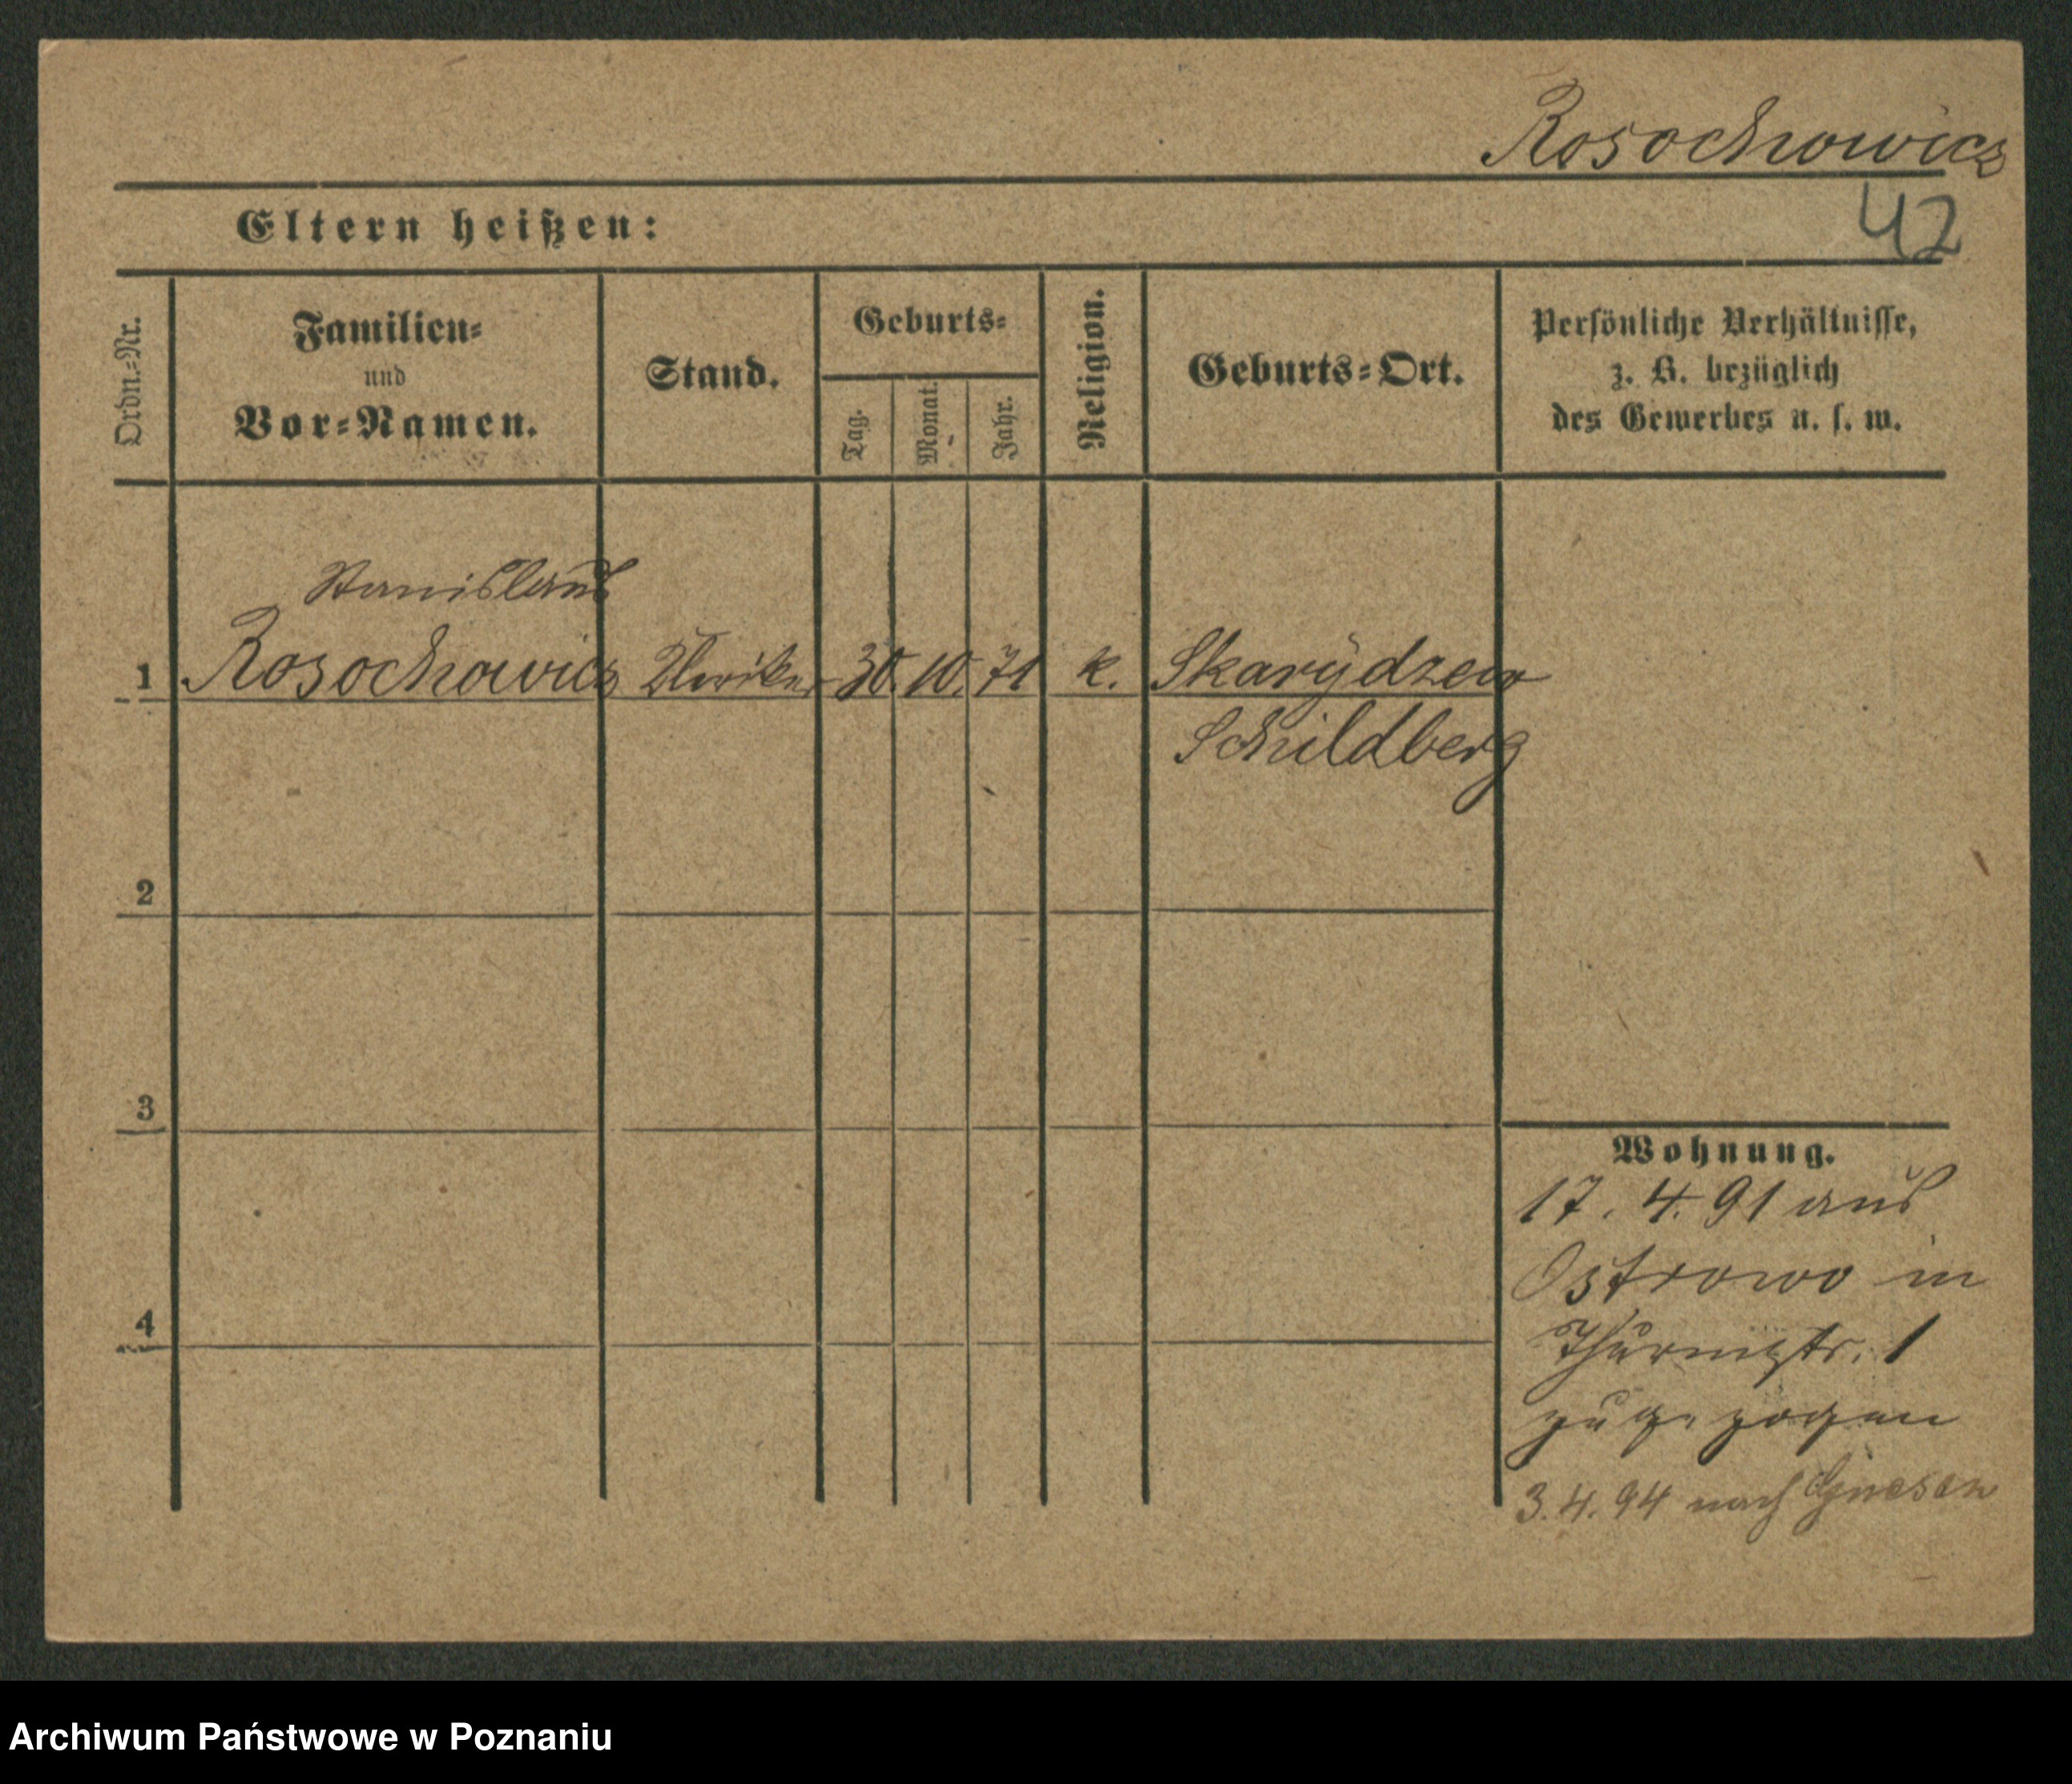 Rosochowicz
42
Eltern heißen:
Ordn.-Nr.
Familien-
und
Vor-Namen.
Stand.
Geburts-
Tag.
Monat.
Jahr.
Religion.
Geburts-Ort.
Persönliche Verhältnisse,
z. B. bezüglich
des Gewerbes u. s. w.
Stanislaus
1 Rosochowicz Kleriker 30. 10. 71 k. Skarydzew
Schildberg
2
3
4
Wohnung.
17. 4. 91 aus
Ostrowo in
Thurmstr. 1
zugezogen
3. 4. 94 nach Gnesen
Archiwum Państwowe w Poznaniu